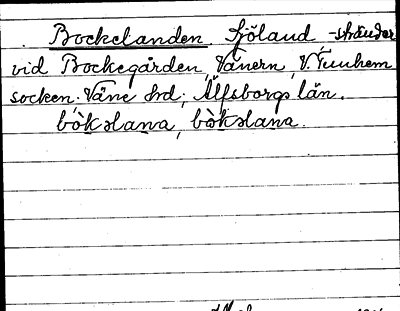 Bockelanden, Sjöland -stränder
vid Bockegården, Vänern, V. Tunhem
socken; Väne hd; Älfsborgs län.
bòkslana, bòkslana.